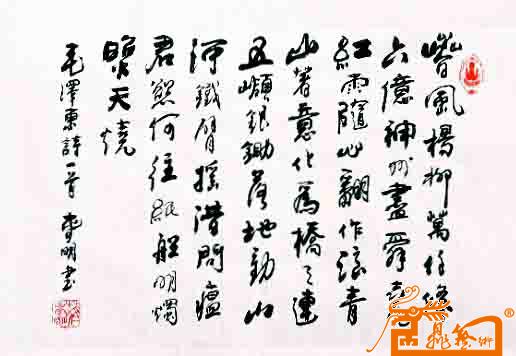 春風楊柳萬千條
六億神州盡舜堯
紅雨隨心翻作浪青
山著意化為橋天連
五嶺銀鋤落地動三
河鐵臂搖借問瘟
君欲何往紙船明燭
照天燒
毛澤東詩一首 李明書
鼎藝術